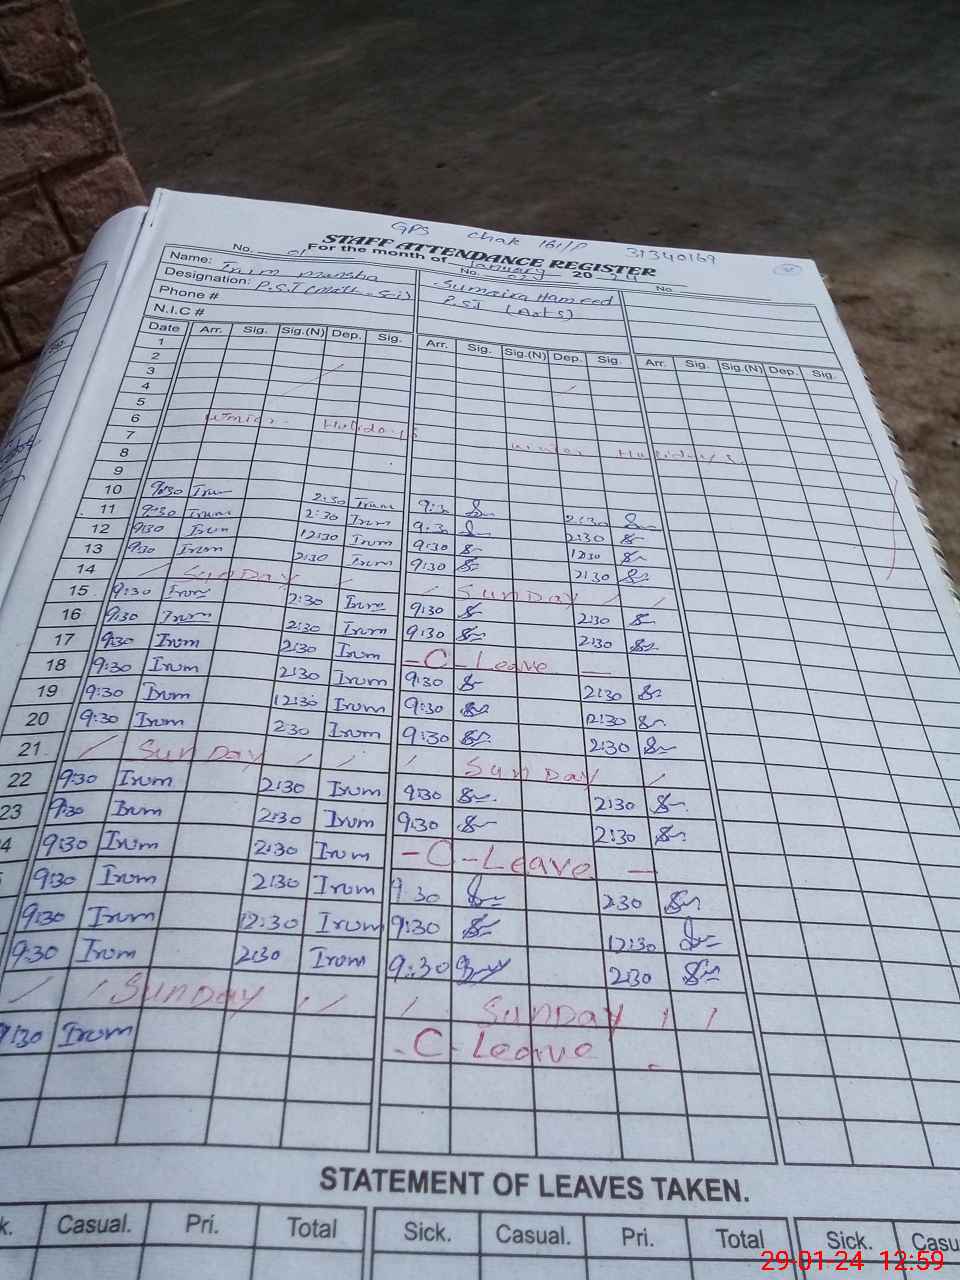 GPS chak 161/P 31340169
STAFF ATTENDANCE REGISTER
For the month of January 2024
Name: No. 01 No. 02 No.
Irum mansha Sumaira Hameed
Designation: P.S.T (Math-Sci) P.S.T (Arts)
Phone #
N.I.C #
Date Arr. Sig. Sig.(N) Dep. Sig. Arr. Sig. Sig.(N) Dep. Sig. Arr. Sig. Sig.(N) Dep. Sig.
1
2
3
4
5
6 Winter Holidays
7 Winter Holidays
8
9
10 9:30 Irum 2:30 Irum 9:30 2:30
11 9:30 Irum 2:30 Irum 9:30 2:30
12 9:30 Irum 12:30 Irum 9:30 12:30
13 9:30 Irum 2:30 Irum 9:30 2:30
14 Sunday Sunday
15 9:30 Irum 2:30 Irum 9:30 2:30
16 9:30 Irum 2:30 Irum 9:30 2:30
17 9:30 Irum 2:30 Irum - C - Leave
18 9:30 Irum 2:30 Irum 9:30 2:30
19 9:30 Irum 12:30 Irum 9:30 12:30
20 9:30 Irum 2:30 Irum 9:30 2:30
21 Sunday Sunday
22 9:30 Irum 2:30 Irum 9:30 2:30
23 9:30 Irum 2:30 Irum 9:30 2:30
4 9:30 Irum 2:30 Irum - C - Leave -
9:30 Irum 2:30 Irum 9:30 2:30
9:30 Irum 12:30 Irum 9:30 12:30
9:30 Irum 2:30 Irum 9:30 2:30
Sunday Sunday
9:30 Irum - C - Leave
STATEMENT OF LEAVES TAKEN.
k. Casual. Pri. Total Sick. Casual. Pri. Total Sick. Casu
29-01-24 12:59